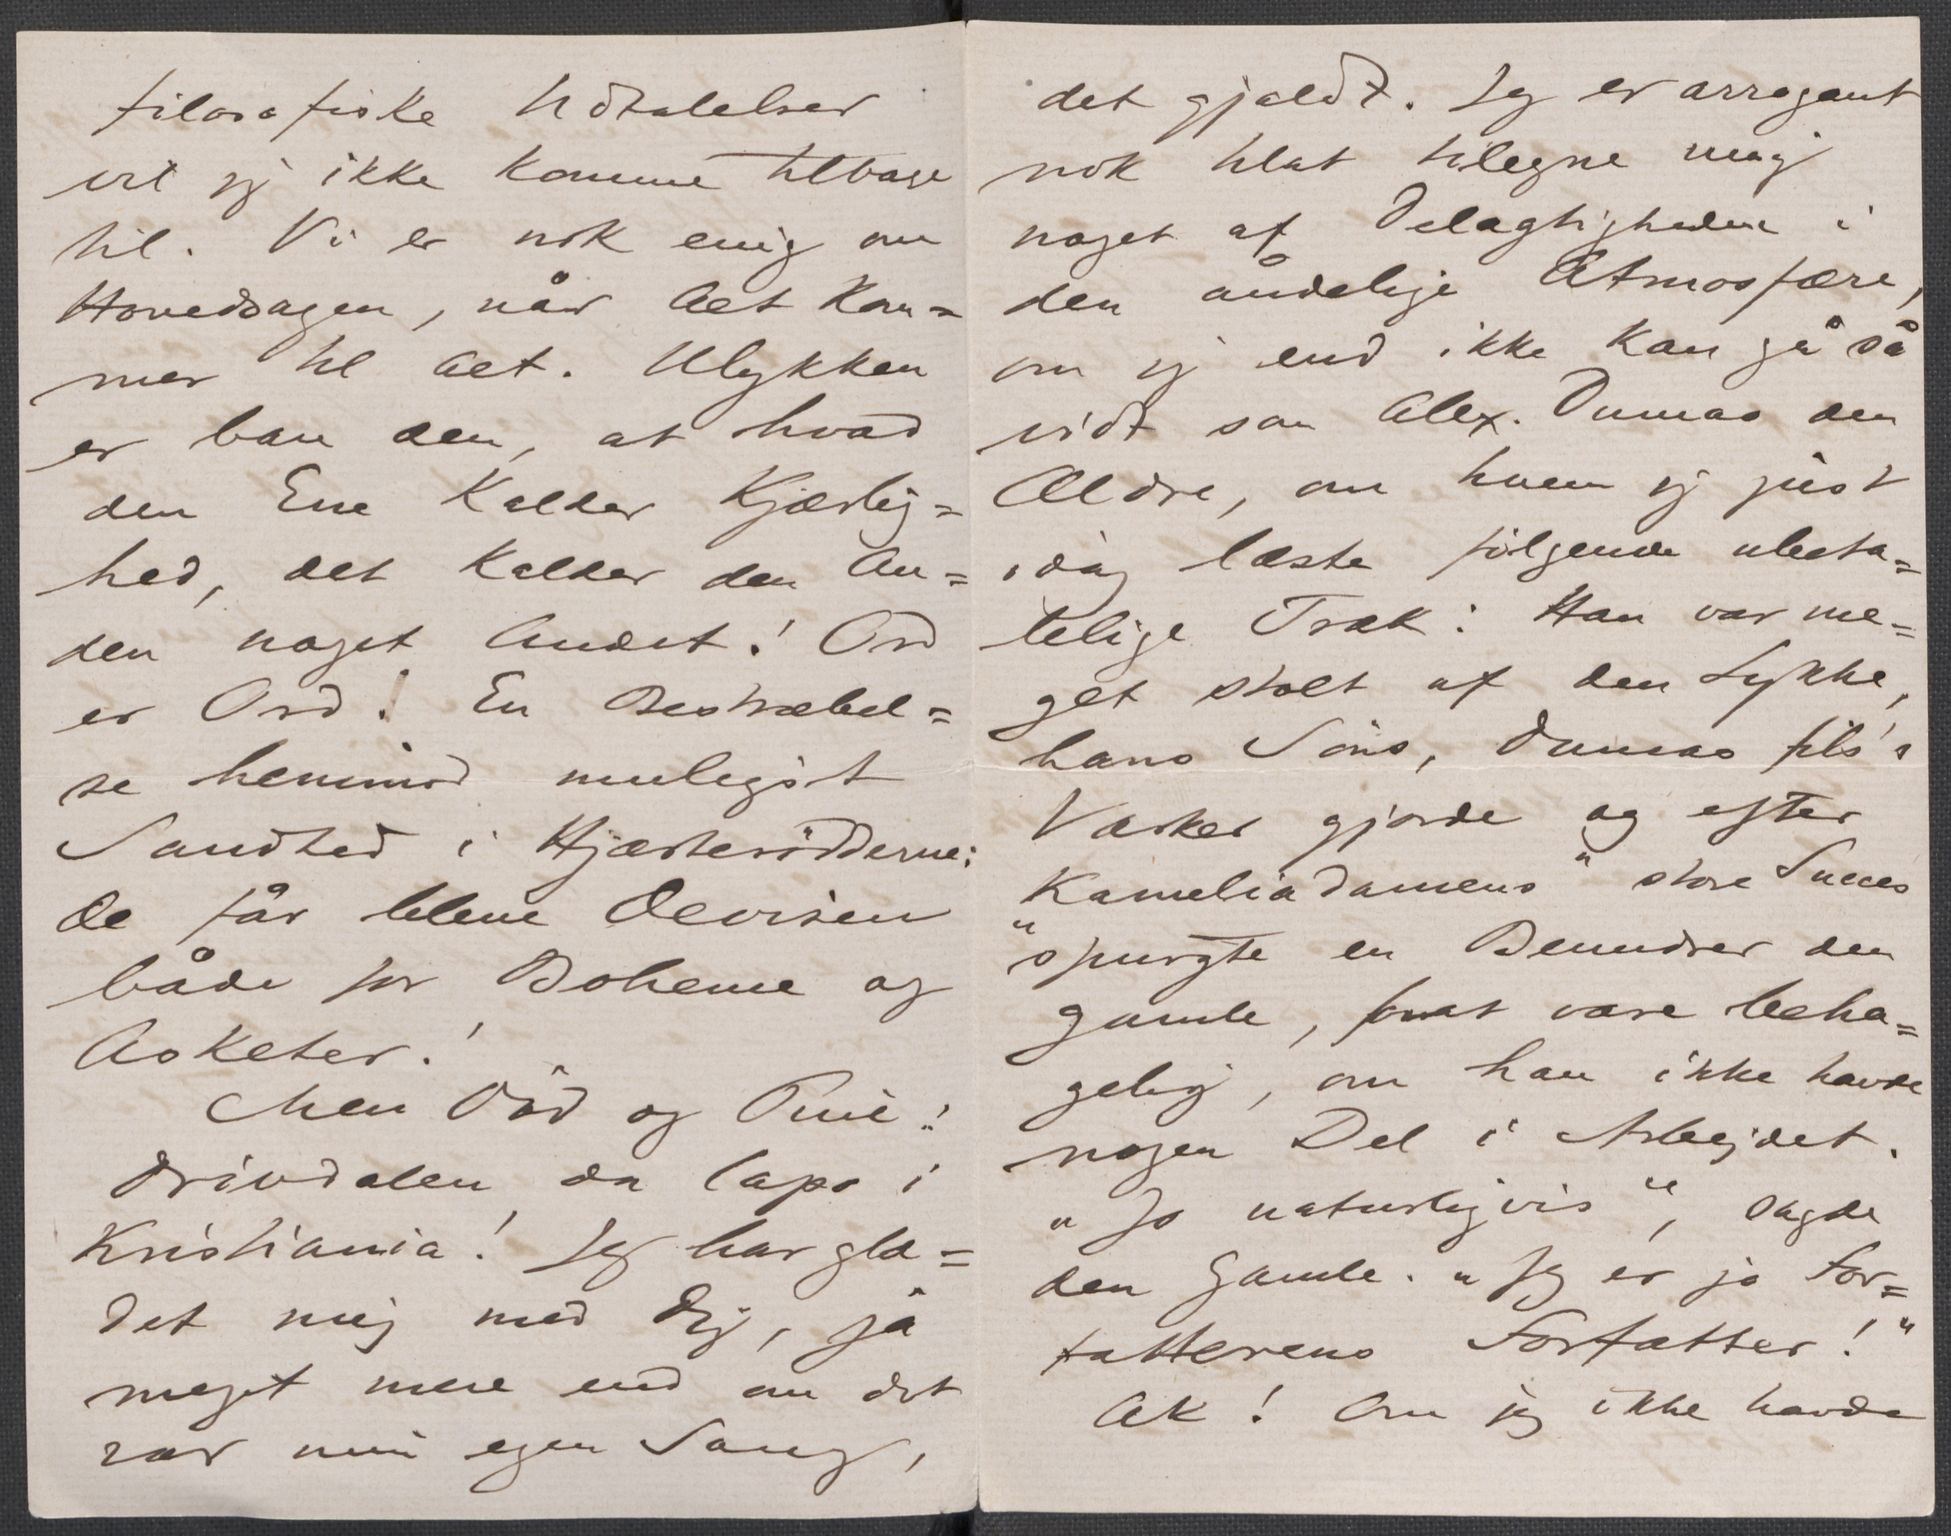 filosofiske Udtalelser
vil jeg ikke komme tilbage
til. Vi er nok enig om
Hovedsagen, når Alt kom=
mer til Alt. Ulykken
er bare den, at hvad
den Ene kalder Kjærlig=
hed, det kalder den An=
den noget Andet! Ord
er Ord! En Bestræbel=
se henimod muligst
Sandhed i Hjærterødderne:
de får blive Devisen
både for Boheme og
Asketer!
Men Død og Pine!
Drivdalen da capo i
Kristiania! Jeg har glæ=
det mig med Dig, ja
meget mere end om det
var min egen Sang,
det gjaldt. Jeg er arrogant
nok til at tilegne mig
noget af Delagtigheden i
den åndelige Atmosfære,
om jeg end ikke kan gå så
vidt som Alex. Dumas den
Ældre, om hvem jeg just
idag læste følgende ubeta=
lelige Træk: Han var me=
get stolt af den Lykke,
hans Søns, Dumas fils's
Værker gjorde og efter
"Kameliadamens" store Succes
spurgte en Beundrer den
gamle, for at være beha=
gelig, om han ikke havde
nogen Del i Arbejdet.
"Jo naturligvis", sagde
den Gamle. "Jeg er jo For=
fatterens Forfatter!"
Ak! Om jeg ikke havde